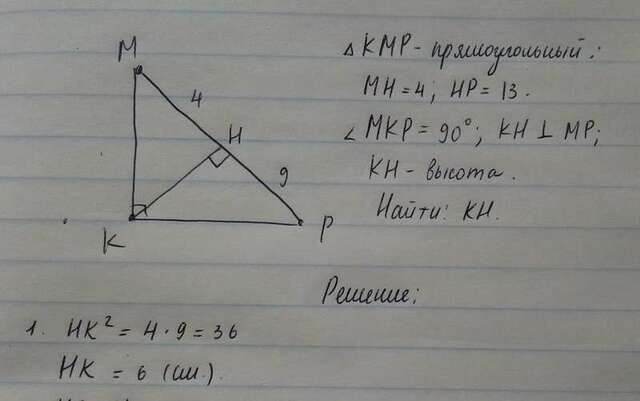 M
4
H
9
K
P
△ KMP - прямоугольный:
MH = 4; HP = 13.
∠ MKP = 90°; KH ⊥ MP;
KH - высота.
Найти: KH.
Решение:
1. HK² = 4 · 9 = 36
HK = 6 (см.).